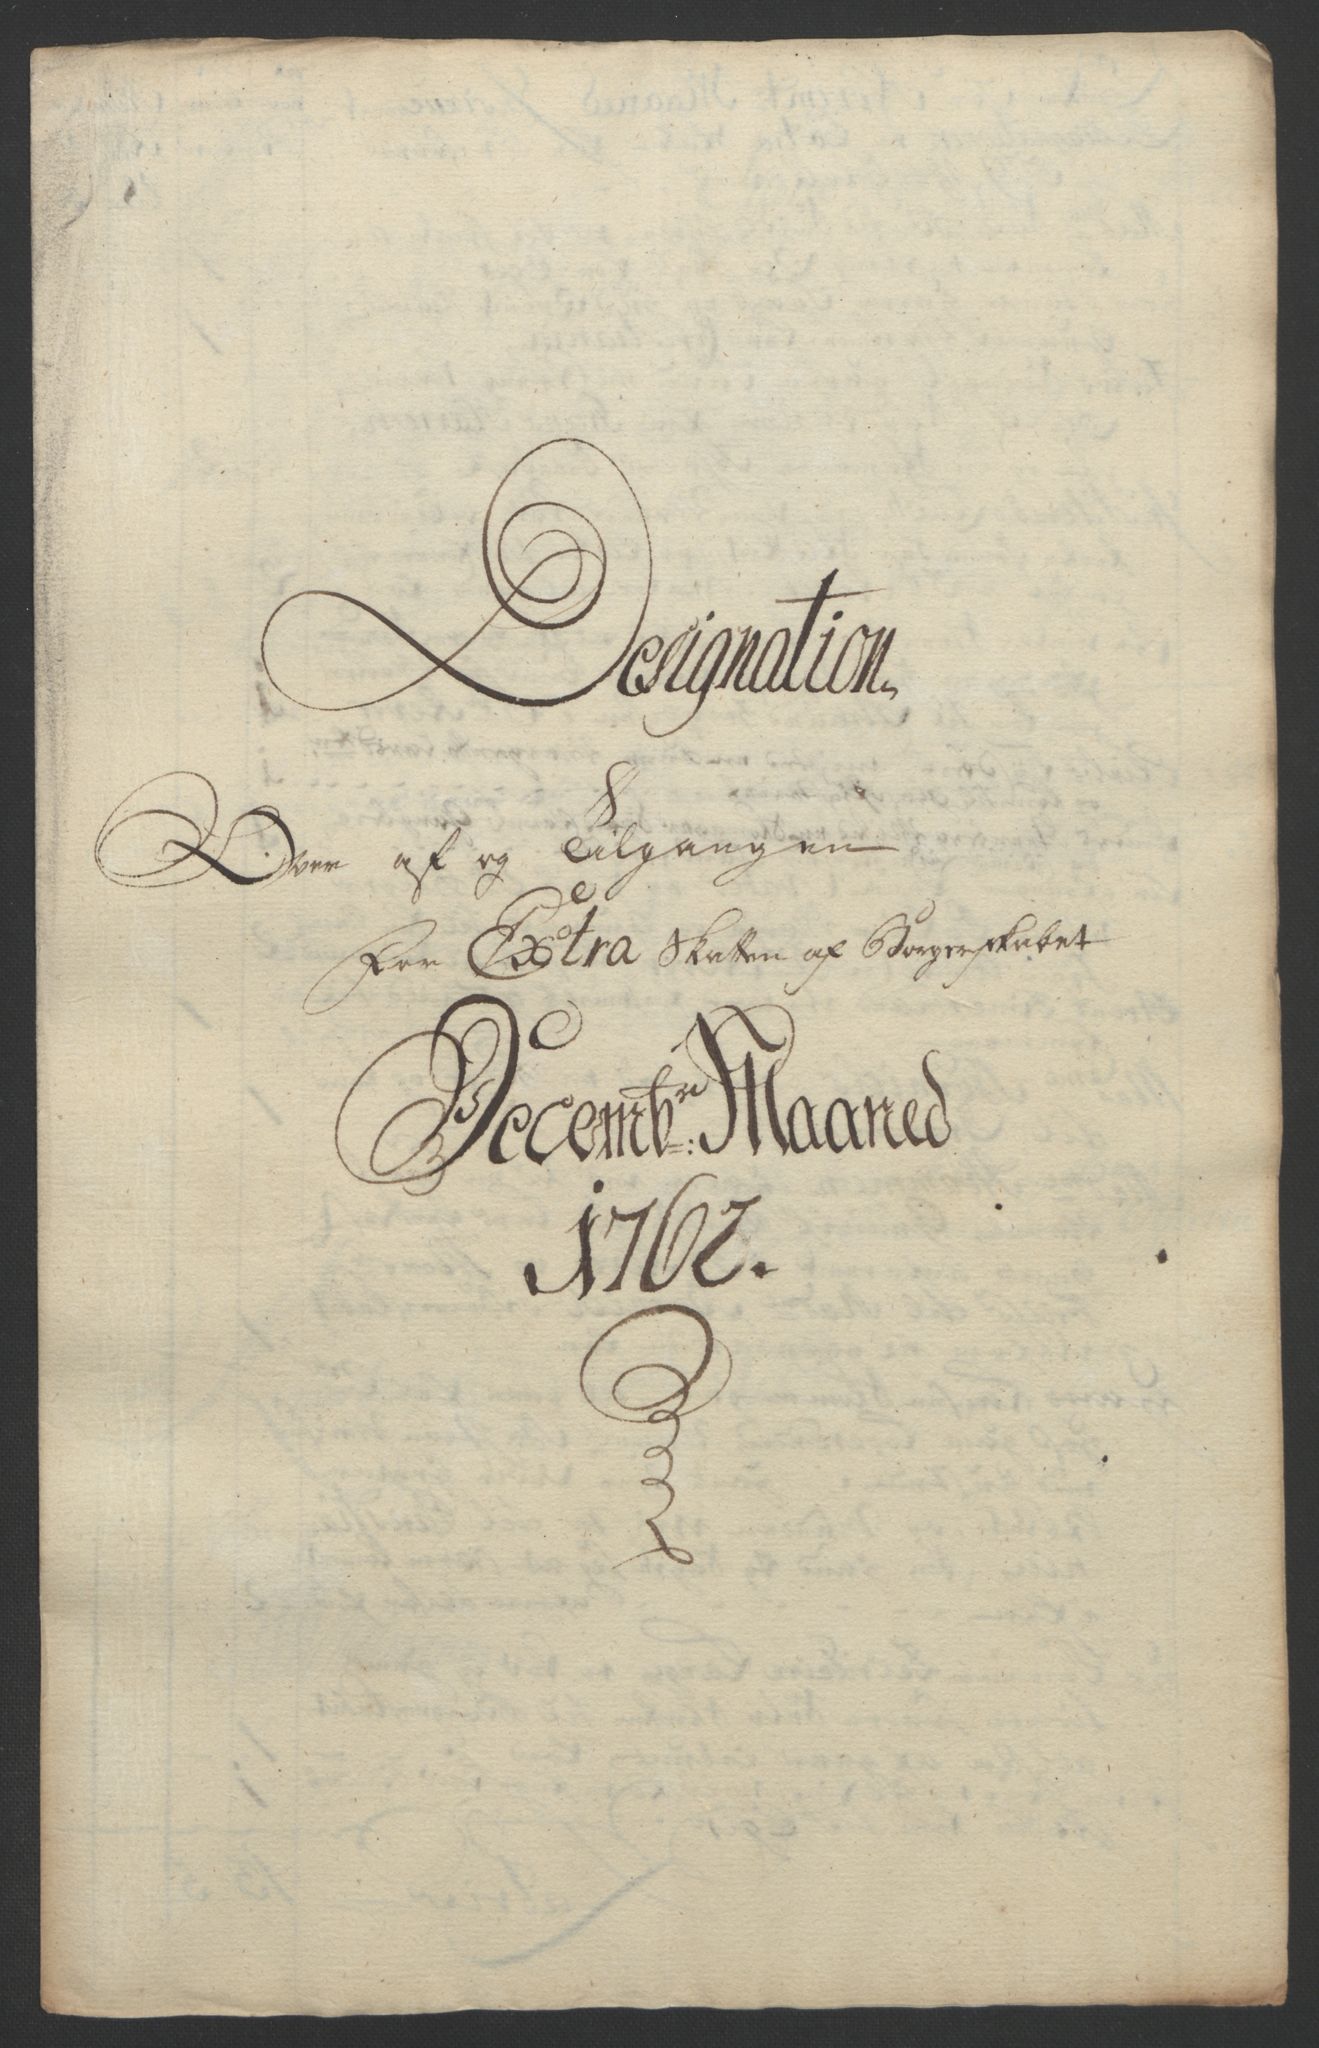 Designation
Over af og Tilgangen
For Extra Skatten af Borgerskabet
Decembr: Maaned
1762.